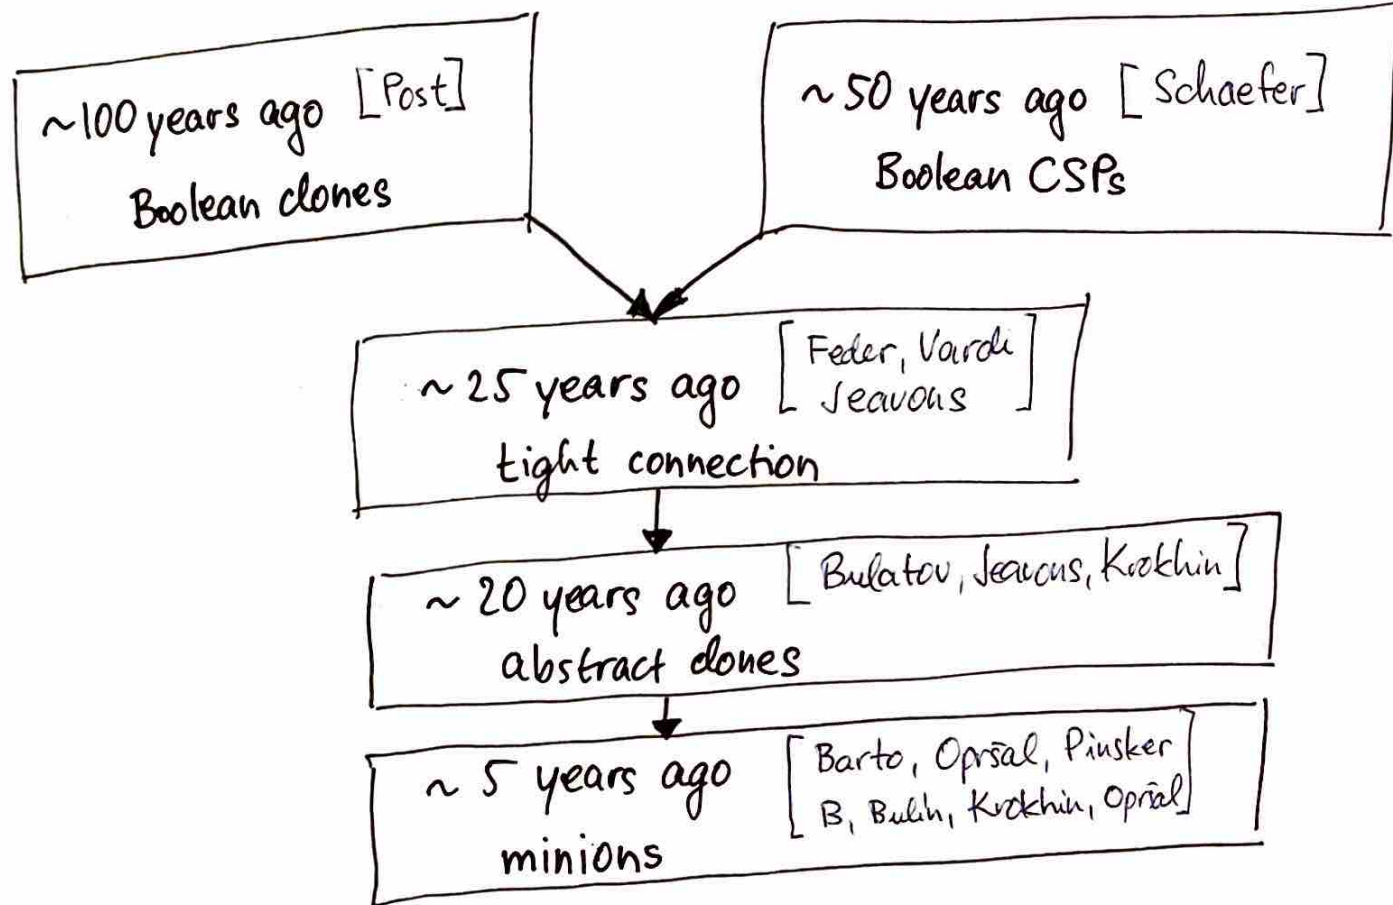 ~100 years ago [Post]
Boolean clones
~50 years ago [Schaefer]
Boolean CSPs
~25 years ago [Feder, Vardi
Jeavons]
tight connection
~20 years ago [Bulatov, Jeavons, Krokhin]
abstract clones
~5 years ago [Barto, Opršal, Pinsker
B, Bulín, Krokhin, Opršal]
minions